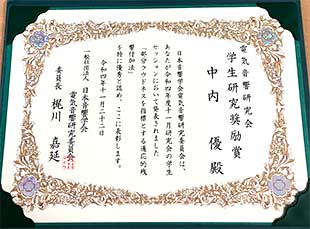 電気音響研究会
学生研究奨励賞
中内 優 殿
日本音響学会電気音響研究委員会は、
あなたが令和四年度十一月研究会の学生
セッションにおいて発表されました
「部分ラウドネスを指標とする適応的残
響付加法」
を特に優秀と認め、ここに表彰します。
令和四年十一月二十二日
一般社団法人 日本音響学会
電気音響研究委員会
委員長 梶川 嘉延